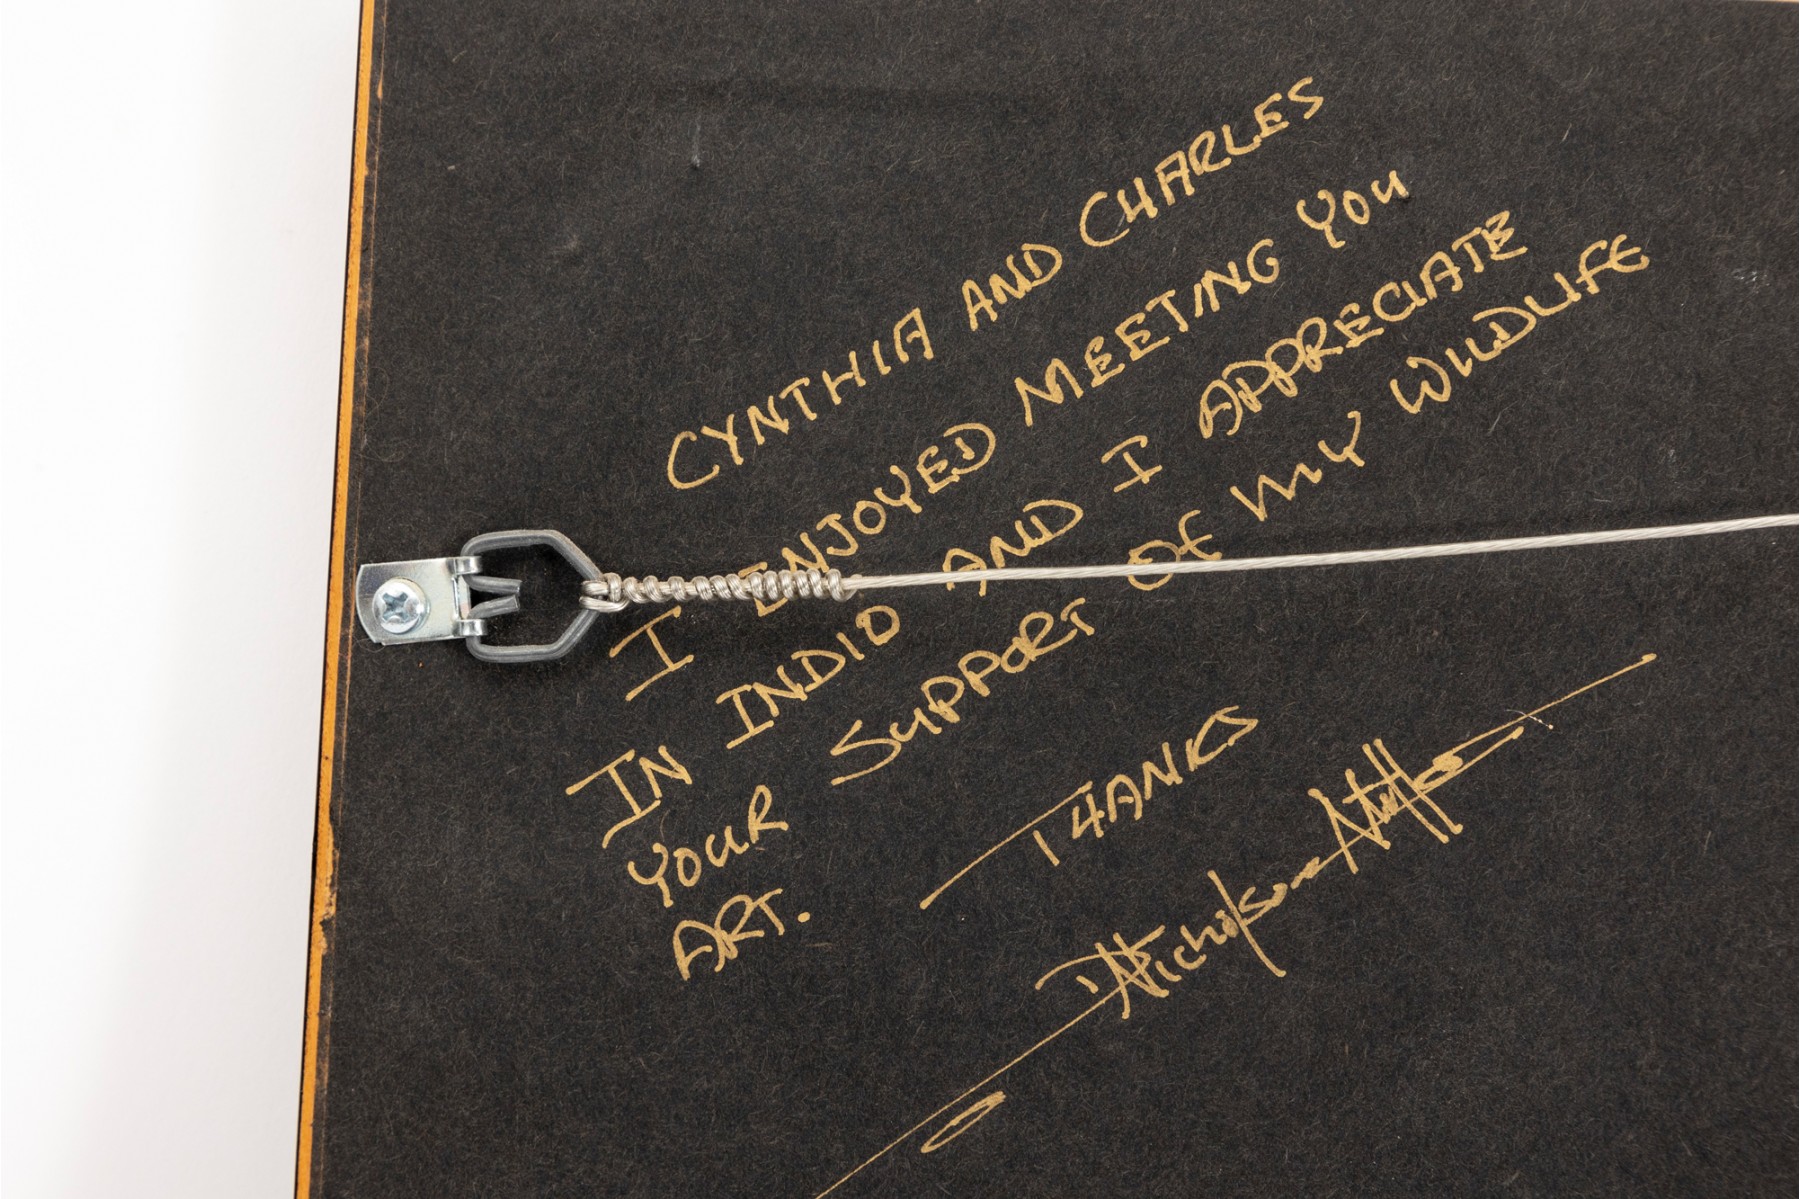 CYNTHIA AND CHARLES
I ENJOYED MEETING YOU
IN INDIO AND I APPRECIATE
YOUR SUPPORT OF MY WILDLIFE
ART.
THANKS
Nicholson